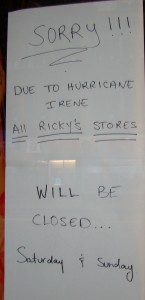 SORRY!!!
DUE TO HURRICANE
IRENE
All RICKY'S STORES
WILL BE
CLOSED...
Saturday & Sunday